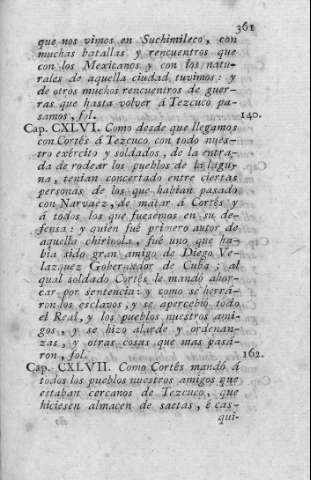 361
que nos vimos en Suchimileco, con
muchas batallas y rencuentros que
con los Mexicanos y con los natu-
rales de aquella ciudad tuvimos: y
de otros muchos rencuentros de guer-
ras que hasta volver á Tezcuco pa-
samos, fol. 140.
Cap. CXLVI. Como desde que llegamos
con Cortés á Tezcuco con todo nues-
tro exército y soldados, de la entra-
da de rodear los pueblos de la lagu-
na, tenian concertado entre ciertas
personas de los que habian pasado
con Narvaez, de matar á Cortés y
á todos los que fuesemos en su de-
fensa: y quien fué primero autor de
aquella chirinola, fué uno que ha-
bia sido gran amigo de Diego Ve-
lazquez Gobernador de Cuba; al
qual soldado Cortés le mandó ahor-
car por sentencia: y como se herrá-
ron los esclavos, y se apercebió todo
el Real, y los pueblos nuestros ami-
gos, y se hizo alarde y ordenan-
zas, y otras cosas que mas pasá-
ron, fol. 162.
Cap. CXLVII. Como Cortés mandó á
todos los pueblos nuestros amigos que
estaban cercanos de Tezcuco, que
hiciesen almacen de saetas, é cas-
qui-